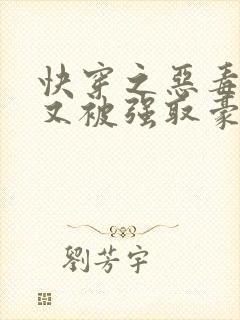 快穿之惡毒
又被强取豪
劉芳宇